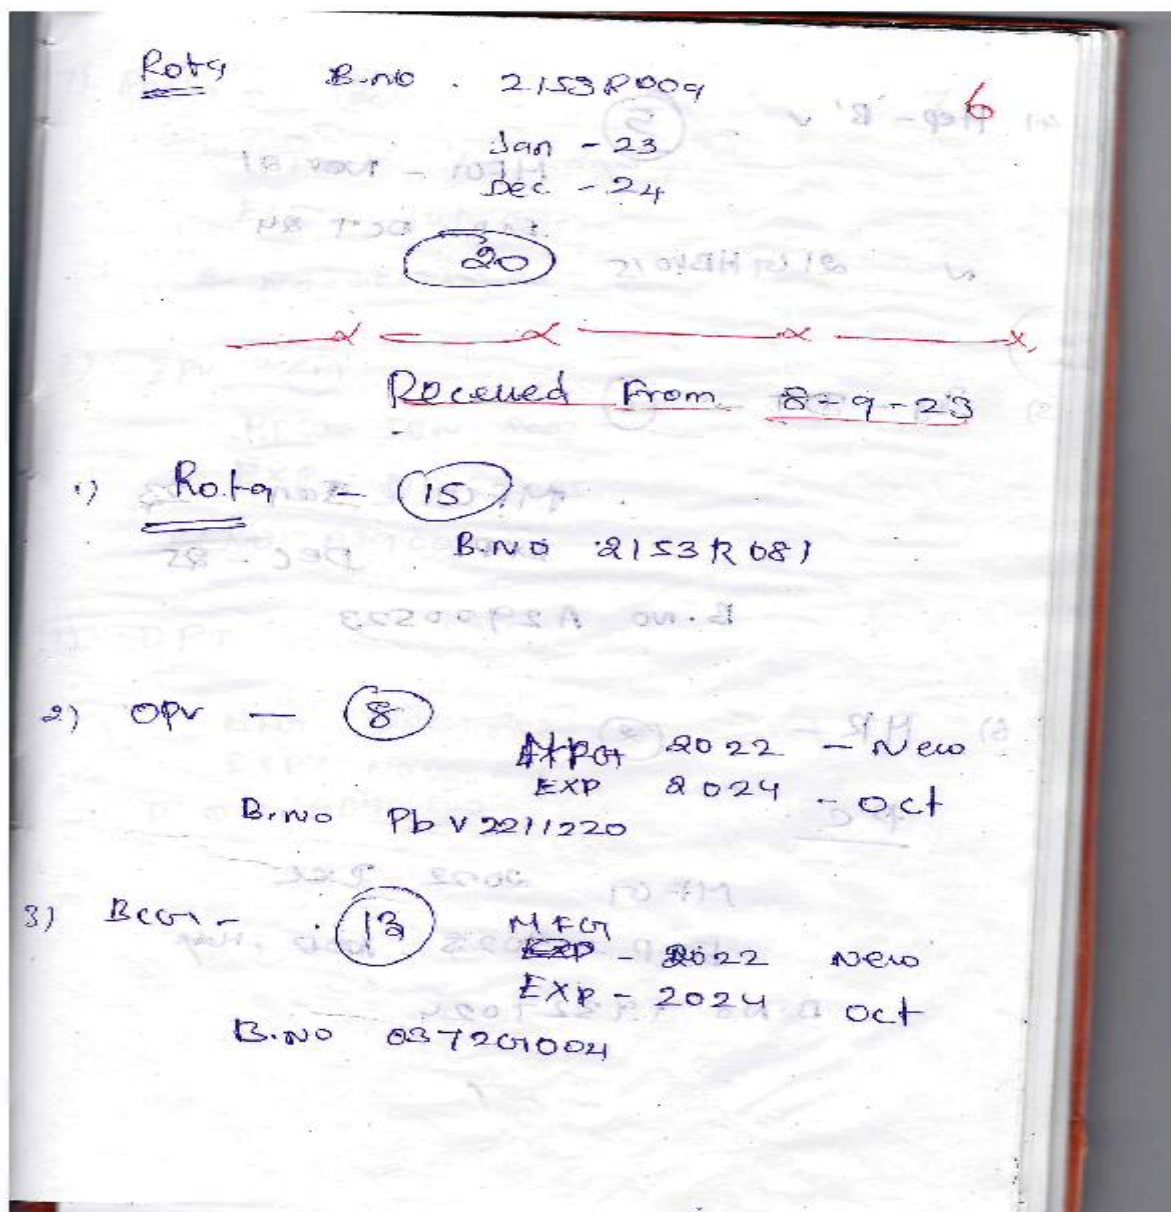 Rota B.no . 2153R009
6
Jan - 23
Dec - 24
20
Received From 8-9-23
1) Rota - 15
B.NO 2153R081
2) OPV - 8
MFG 2022 - Nev
EXP 2024 - Oct
B.NO PbV2211220
3) BCG - 13 MFG
EXP - 2022 Nev
EXP - 2024 Oct
B.NO 037G1004